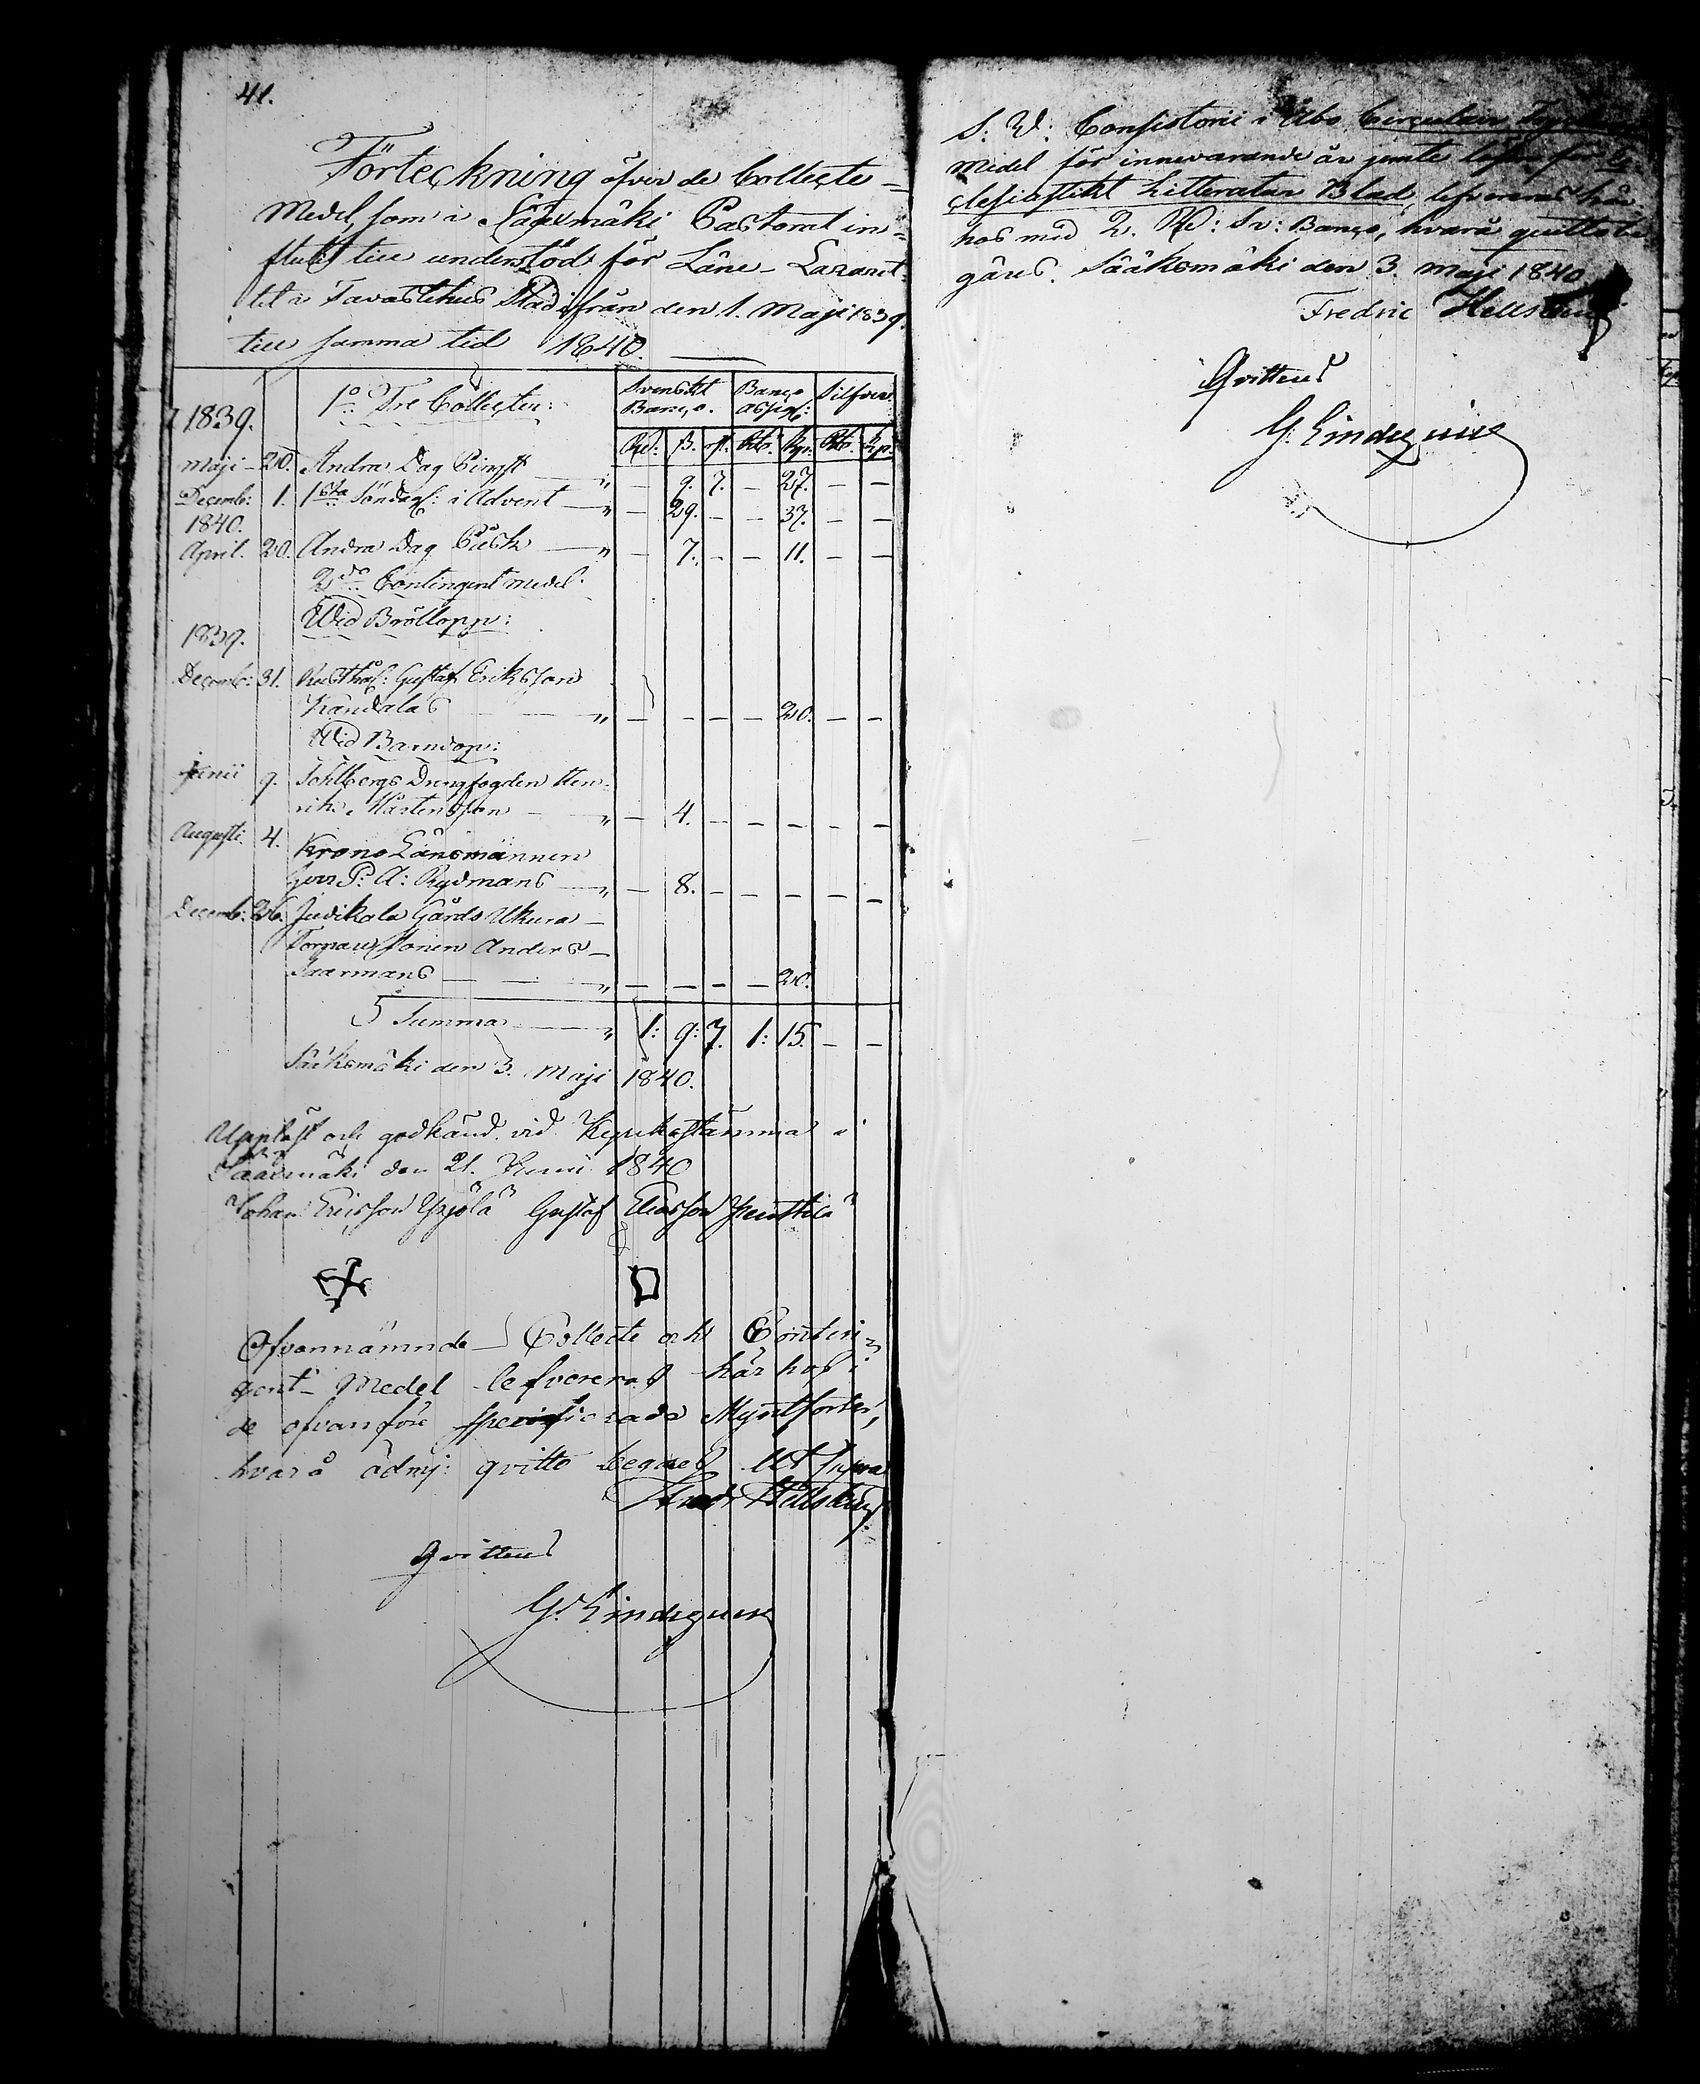 41.
Förteckning öfver de Collecte-
Medel, som i Sääxmäki Pastorat in-
flutit till understöd för Läns-Lazaret-
tet i Tavastehus Stad ifrån den 1. Maji 1839.
till samma tid 1840.
1839. 1o Tre Collecter: Svenskt Banço. Banço assign: Silfver.
Rd: ß. rst. Rub. Kop. Rub. Kop.
Maji 20. Andra Dag Pingst " — 9. 7. — 27. — —
Decemb: 1. 1sta Söndag: i Advent — " — 29. — — 37. — —
1840.
April. 20. Andra Dag Påsk — " — 7. — — 11. — —
2do Contingent medel.
Wid Bröllopp:
1839.
Decemb: 31. Rusthål: Gustaf Eriksson
Kandalas — — " — — — — 20. — —
Wid Barndop:
Junii 9. Sohlbergs Drengfogden Hen-
rik Mårtensson — " — 4. — — — — —
Augusti 4. Krono Länsmannen
Herr P: A: Rydmans — " — 8. — — — — —
Decemb: 26. Judikala Gårds Ukura —
Torpare Sonen Anders —
Saarmans — — " — — — — 20.
Summa — " 1: 9: 7. 1: 15. — —
Sääksmäki den 3. Maji 1840.
Upläst och godkänd vid Kyrkostämma i
Sääxmäki den 21. Junii 1840
Johan Ericsson Yrjölä Gustaf Eliasson Penttilä
Ofvannämnde Collecte och Contin-
gent-Medel lefvereras här hos i
de ofvanföre specificerade Myntsorter,
hvarå ödmj: qvitto begäres Ut supra
Fredr Hellsten
Qvitteras
G. Lindeqvist
S: W: Consistorii i Åbo Circulair Tryck
Medel för innevarande år jemte lösen för Ec-
clesiastikt Litteratur Blad, lefvereras här
hos med 2. Rd: Sv: Banço, hvarå quittobe-
gäres. Sääksmäki den 3. Maji 1840
Fredric Hellsten
Qvitteras
G. Lindeqvist